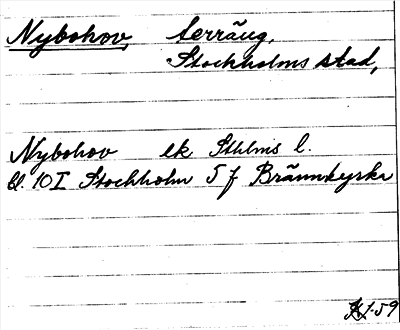 Nybohov, terräng,
Stockholms stad,
Nybohov ek Sthlms l.
bl. 10 I Stockholm 5 f Brännkyrka
1.59